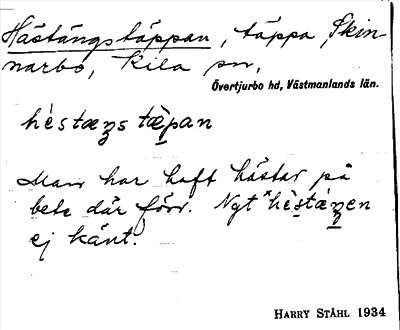 Hästängstäppan, täppa, Skin-
narbo, Kila sn,
Övertjurbo hd, Västmanlands län.
hèstæŋs tæ̀pan
Man har haft hästar på
bete där förr. Ngt *hèstæ̀ŋen
ej känt.
HARRY STÅHL 1934